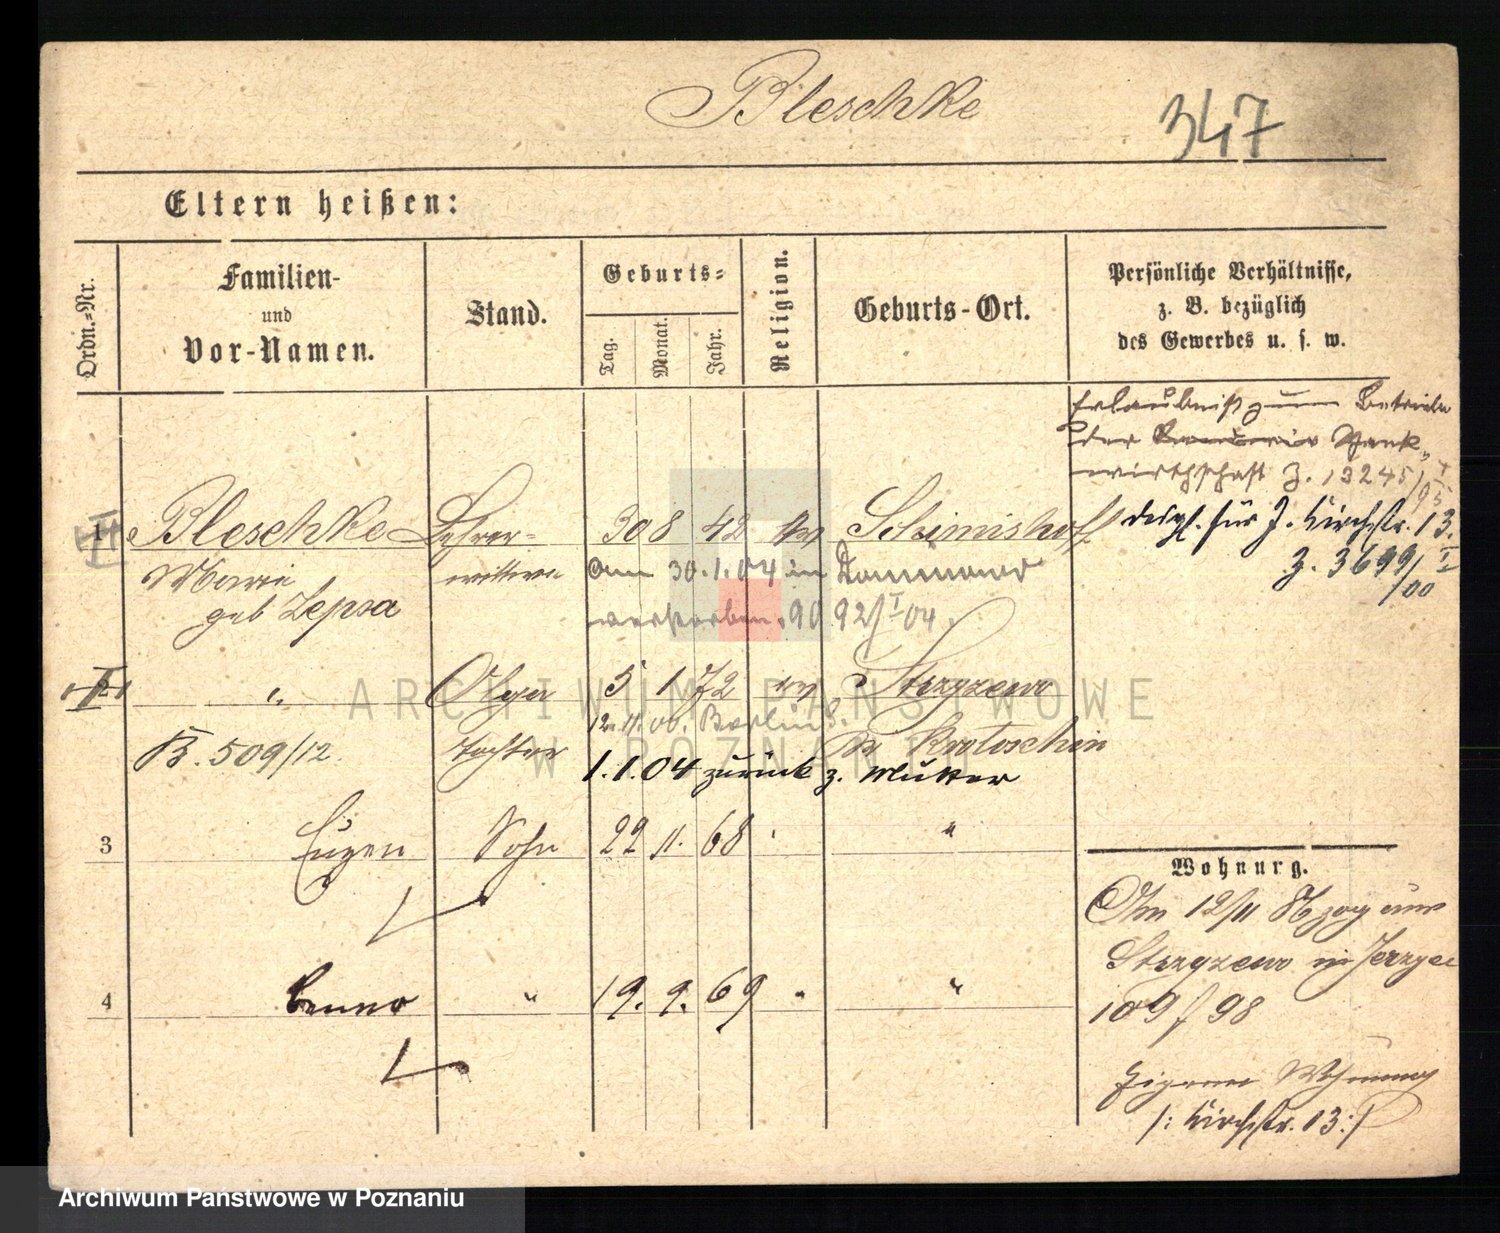 Bleschke
347
Eltern heißen:
Ordn.-Nr.
Familien-
und
Vor-Namen.
Stand.
Geburts-
Tag.
Monat.
Jahr.
Religion.
Geburts-Ort.
Persönliche Verhältnisse,
z. B. bezüglich
des Gewerbes u. s. w.
Erlaubniß zum Betriebe
der Schank-
wirthschaft Z. 13245/I 95
1 Bleschke Lehrer- 30 8 42 ev Schimishoff desgl. für J. Kirchstr. 13.
Z. 3699/I 00
Marie wittwe am 30.1.04 in
geb Zepsa verstorben. 9092/I 04
2 " Olga 5 1 72 ev Strzyzewo
12.11.00. Berlin
B. 509/12. Tochter Kr Krotoschin
1.1.04 zurück z. Mutter
3 Eugen Sohn 22 11. 68 "
4 Benno " 19. 9. 69 " "
Wohnung.
Am 12/11 98 zog aus
Strzyzewo in Jerzyce
109 f 98
Eigene Wohnung
/: Kirchstr. 13 :/
ARCHIWUM PAŃSTWOWE
W POZNANIU
Archiwum Państwowe w Poznaniu